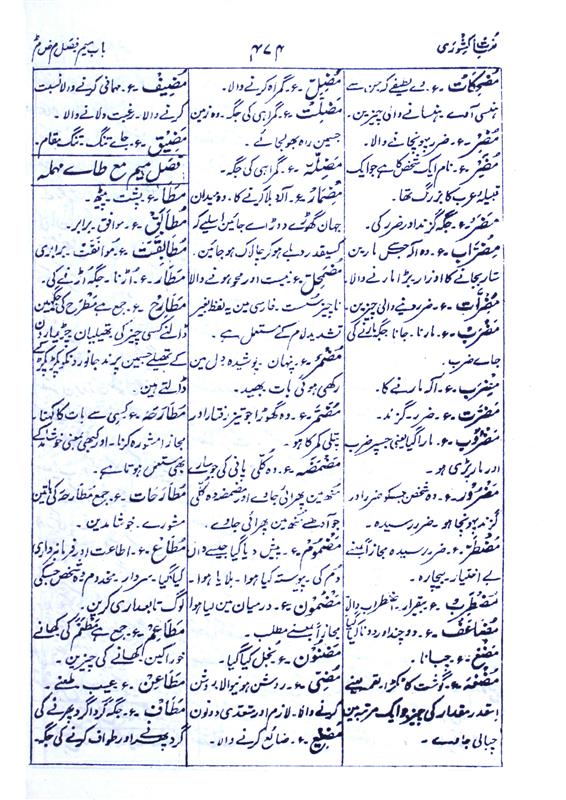 لغات کشوری
۴۷۴
باب میم فصل م ض م ط
مُضحِکات ۔ ع۔ وے لطیفے کہ جن سے
ہنسی آوے۔ ہنسانے والی چیزین۔
مُضِر ۔ ع۔ ضرر پہونچانے والا۔
مُضَر ۔ ع۔ نام ایک شخص کا ہے جو ایک
قبیلۂ عرب کا بزرگ تھا۔
جگہ گزند اور ضرر کی۔
مِضراب ۔ ع۔ وہ آلہ کہ جس مارین
ستار بجانے کا اوزار۔ بڑا مارنے والا۔
مُضرّات ۔ ع۔ ضرر دینے والی چیزین۔
مَضرَب ۔ ع۔ مارنا۔ جانا۔ جگہ مارنے کی
جاے ضرب۔
مِضرَب ۔ ع۔ آلہ مارنے کا۔
مَضرّت ۔ ع۔ ضرر۔ گزند۔
مَضرُوب ۔ ع۔ مارا گیا یعنی جسپر ضرب
اور مار پڑی ہو۔
مَضرُور ۔ ع۔ وہ شخص جسکو ضرر اور
گزند پہونچا ہو۔ ضرر رسیدہ۔
مُضطَر ۔ ع۔ ضرر رسیدہ مجازاً بمعنے
بے اختیار۔ بیچارہ۔
مُضطَرِب ۔ ع۔ بیقرار۔ اضطراب والا
مُضاعَف ۔ ع۔ دو چند اور دونا کیا گیا
مَضغ ۔ ع۔ چبانا۔
مُضغہ ۔ ع۔ گوشت کا ٹکڑا۔ لقمہ یعنے
اسقدر مقدار کی چیز جو ایک مرتبہ مین
چبائی جاوے۔
مُضِل ۔ ع۔ گمراہ کرنے والا۔
مَضِلّت ۔ ع۔ گمراہی کی جگہ۔ وہ زمین
جسمین راہ بھول جائے۔
مَضِلّہ ۔ ع۔ گمراہی کی جگہ۔
مِضمار ۔ ع۔ آلہ دبلا کرنے کا۔ وہ میدان
جہان گھوڑے دوڑاے جائین اسلیے کہ
کسیقدر دبلے ہو کر چالاک ہو جائین۔
مُضمَحِل ۔ ع۔ نیست اور محو ہونے والا
ناچیز۔ سست۔ فارسی مین یہ لفظ بغیر
تشدید لام کے مستعمل ہے۔
مُضمَر ۔ ع۔ نہان۔ پوشیدہ۔ دل مین
رکھی ہوئی بات۔ بھید۔
مُضمّر ۔ ع۔ وہ گھوڑا جو تیز رفتار اور
پتلی کمر کا ہو۔
مَضمَضہ ۔ ع۔ وہ کلّی پانی کی جو سارے
منھ مین پھرائی جاوے اور مضمضہ وہ کلّی
جو آدھے منھ مین پھرائی جاوے۔
مَضمُوم ۔ ع۔ پیش دیا گیا جیسے دال
دم کی۔ پیوستہ کیا ہوا۔ ملایا ہوا۔
مَضمُون ۔ ع۔ درمیان مین لیا ہوا
مجازاً بمعنے مطلب۔
مَضنُون ۔ ع۔ بخل کیا گیا۔
مُضِئی ۔ ع۔ روشن ہونیوالا۔ روشن
کرنے والا۔ لازم اور متعدی دونون
مُضِیع ۔ ع۔ ضائع کرنے والا۔
مُضِیف ۔ ع۔ مہمانی کرنے والا۔ نسبت
کرنے والا۔ رغبت دلانے والا۔
مَضِیق ۔ ع۔ جاے تنگ۔ تنگ مقام۔
فصل میم مع طاے مہملہ
مَطا ۔ ع۔ پشت۔ پیٹھ۔
مُطابِق ۔ ع۔ موافق۔ برابر۔
مُطابَقَت ۔ ع۔ موافقت۔ برابری
مَطار ۔ ع۔ اڑنا۔ جگہ اڑنے کی۔
مَطارِح ۔ ع۔ جمع ہے مطرح کی جگہین
ڈالنے کسی چیز کی۔ تھیلیان چڑیمارون
کے تھیلے جسمین پرند جانور پکڑ پکڑ کے
ڈالتے ہین۔
مُطارَحہ ۔ ع۔ کسی سے بات کا کہنا۔
مجازاً مشورہ کرنا۔ اور کبھی بمعنی خوشامد کے
بھی مستعمل ہوتا ہے۔
مُطارَحات ۔ ع۔ جمع مطارحہ کی۔ باتین
مشورے۔ خوشامدین۔
مُطاع ۔ ع۔ اطاعت اور فرمانبرداری
کیا گیا۔ سردار۔ مخدوم۔ وہ شخص جسکی
لوگ تابعداری کرین۔
مَطاعِم ۔ ع۔ جمع ہے مطعم کی۔ کھانے
خوراکین۔ کھانے کی چیزین۔
مَطاعِن ۔ ع۔ عیب۔ طعنے۔
مَطاف ۔ ع۔ جگہ گرداگرد پھرنے کی
گرد پھرنے اور طواف کرنے کی جگہ۔